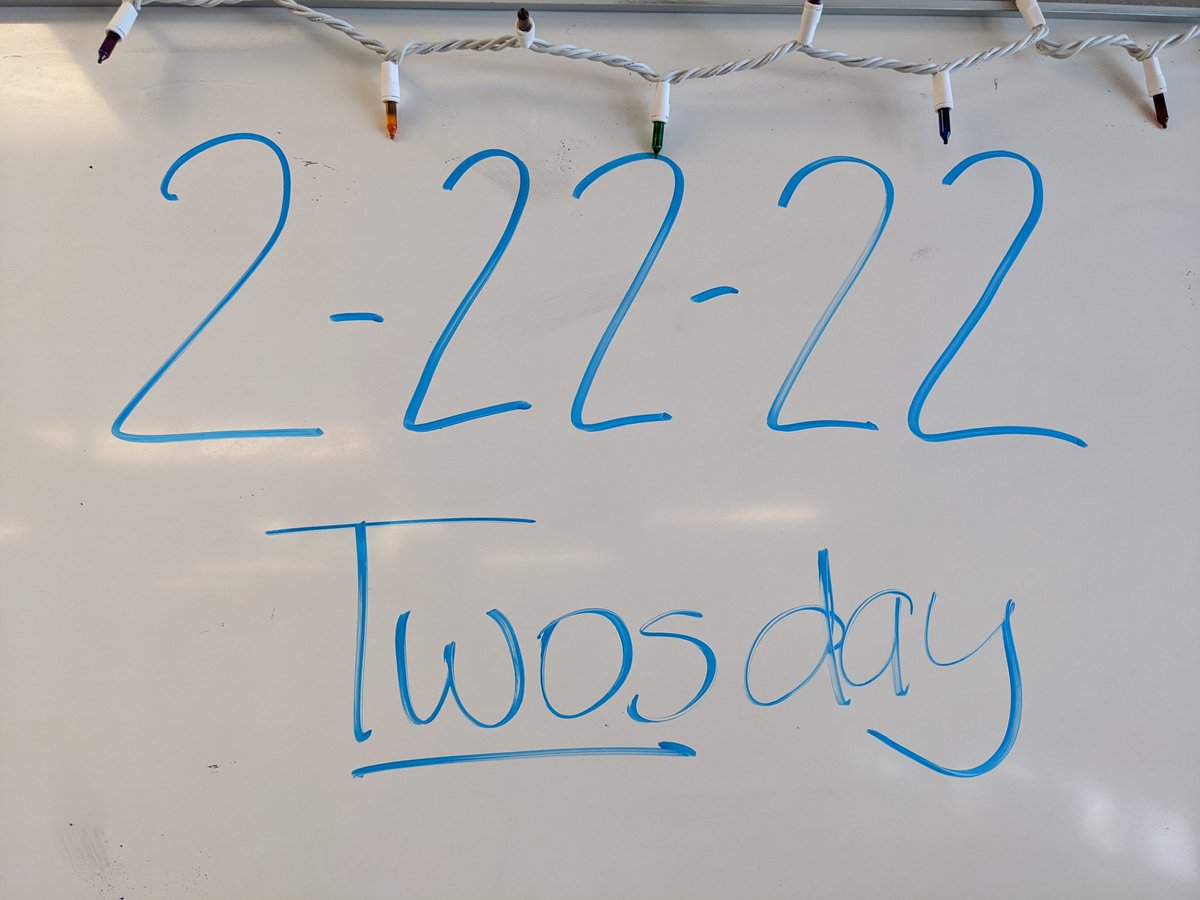 2-22-22
Twosday